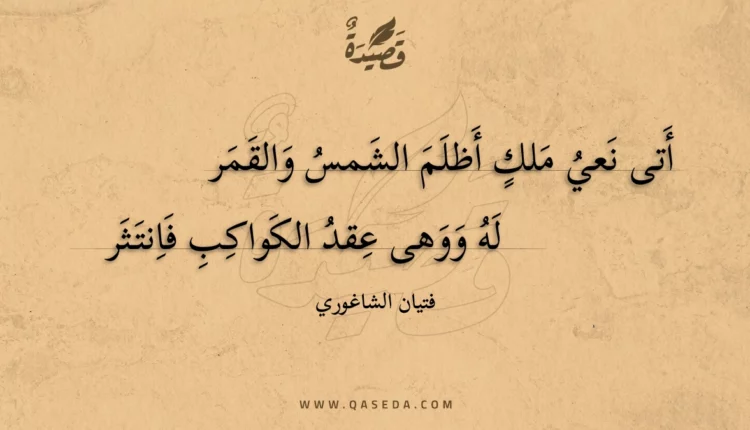 قَصِيْدَةٌ
أَتى نَعيُ مَلكٍ أَظلَمَ الشَمسُ وَالقَمَر
لَهُ وَوَهى عِقدُ الكَواكِبِ فَاِنتَثَر
فتيان الشاغوري
WWW.QASEDA.COM